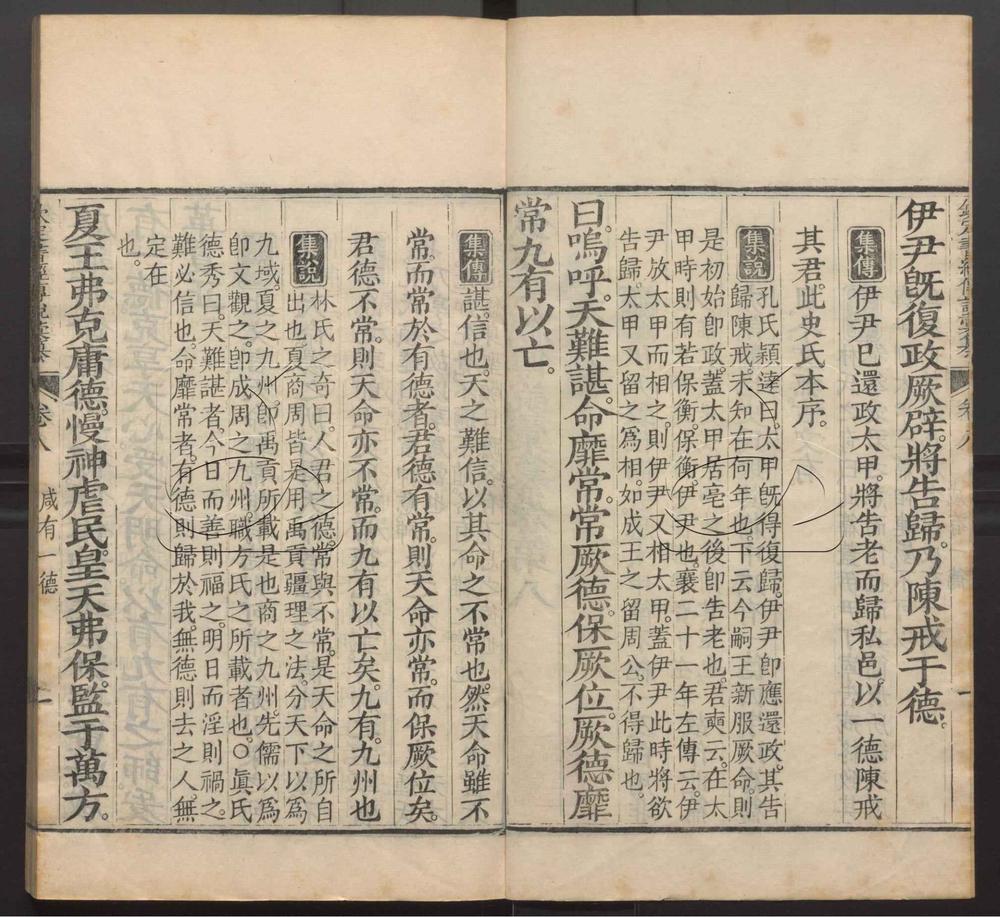 伊尹旣復政厥辟。將告歸。乃陳戒于德。
集傳 伊尹已還政太甲。將告老而歸私邑。以一德陳戒
其君。此史氏本序。
集説 孔氏穎達曰。太甲旣得復歸。伊尹卽應還政。其告
歸陳戒。未知在何年也。下云今嗣王新服厥命。則
是初始卽政。蓋太甲居亳之後卽告老也。君奭云。在太
甲時則有若保衡。保衡。伊尹也。襄二十一年左傳云。伊
尹放太甲而相之。則伊尹又相太甲。蓋伊尹此時將欲
告歸。太甲又留之爲相。如成王之留周公。不得歸也。
曰。嗚呼。天難諶。命靡常。常厥德。保厥位。厥德靡
常。九有以亡。
集傳 諶。信也。天之難信。以其命之不常也。然天命雖不
常。而常於有德者。君德有常。則天命亦常。而保厥位矣。
君德不常。則天命亦不常。而九有以亡矣。九有。九州也
集説 林氏之奇曰。人君之德。常與不常。是天命之所自
出也。夏商周皆是用禹貢疆理之法。分天下以爲
九域。夏之九州。卽禹貢所載是也。商之九州。先儒以爲
卽文觀之。卽成周之九州。職方氏之所載者也。○眞氏
德秀曰。天難諶者。今日而善則福之。明日而淫則禍之。
難必信也。命靡常者。有德則歸於我。無德則去之人。無
定在
也。
夏王弗克庸德。慢神虐民。皇天弗保。監于萬方。
卷八
咸有一德
一